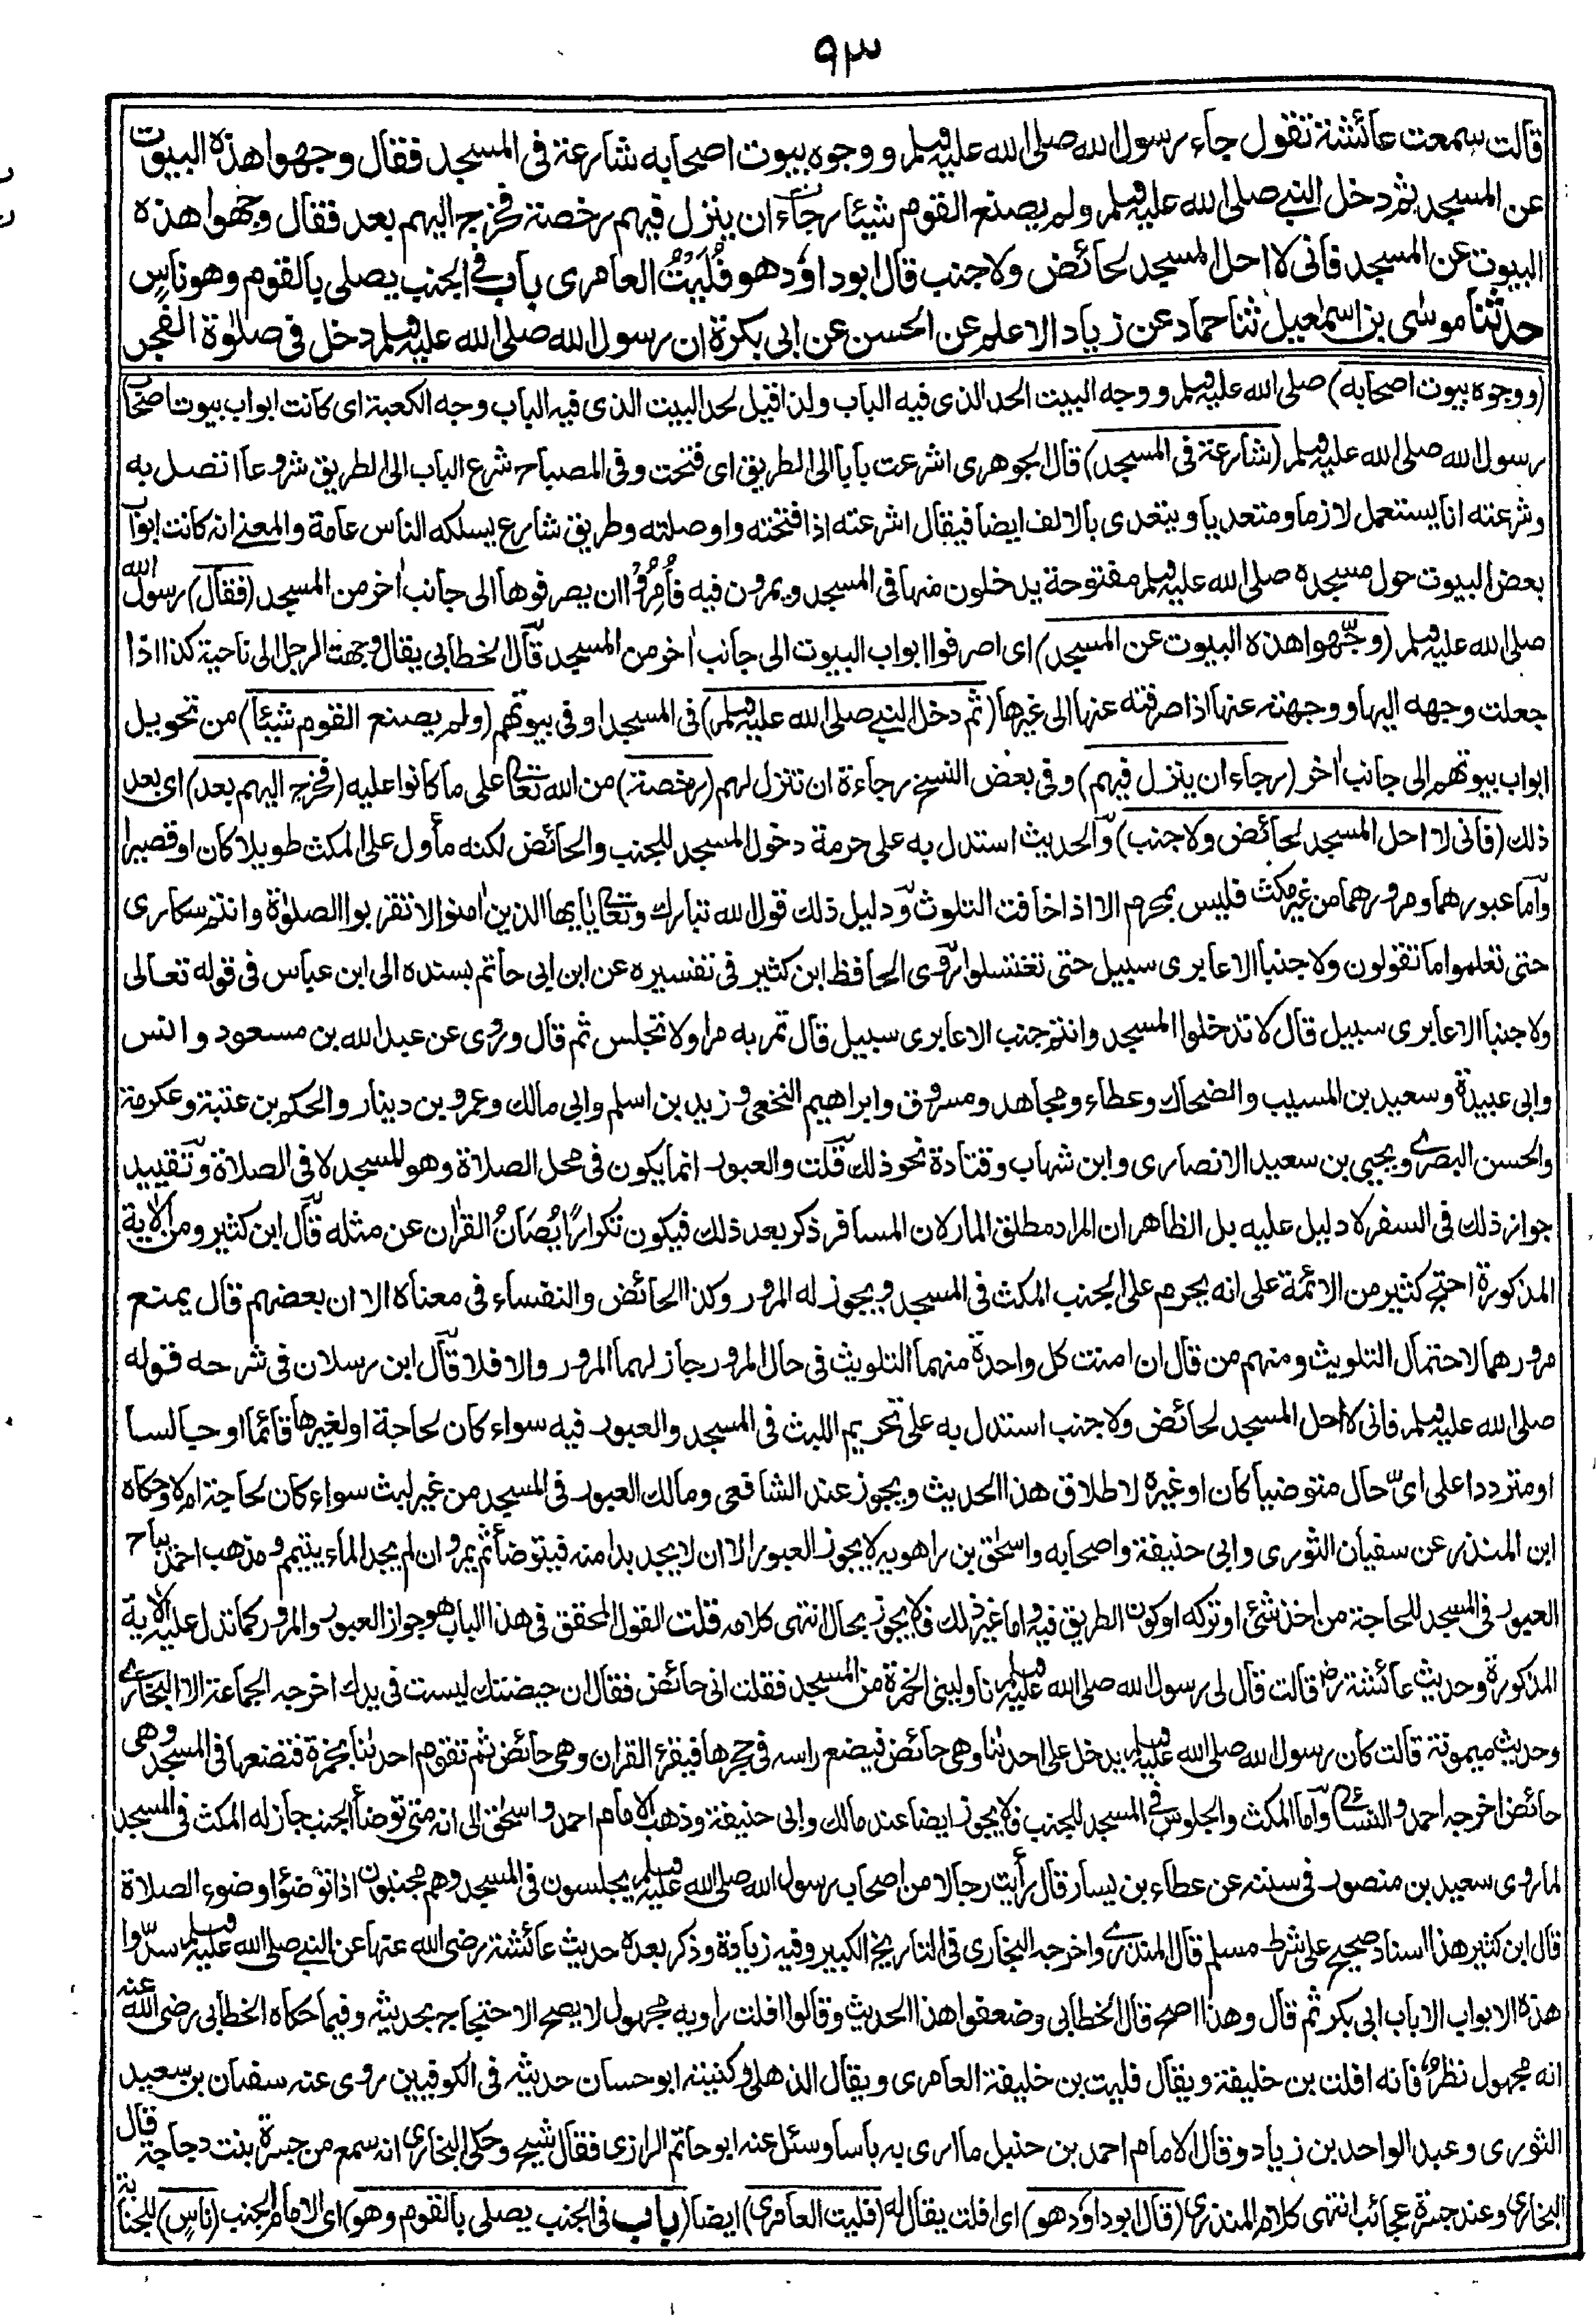 ٩٣
قالت سمعت عائشة تقول جاء رسول الله صلى الله عليه وسلم ووجوه بيوت اصحابه شارعة فى المسجد فقال وجهوا هذه البيوت
عن المسجد ثم دخل النبي صلى الله عليه وسلم ولم يصنع القوم شيئا رجاء ان ينزل فيهم رخصة فخرج اليهم بعد فقال وجهوا هذه
البيوت عن المسجد فانى لا احل المسجد لحائض ولا جنب قال ابو داود هو فُلَيْتُ العامرى باب فى الجنب يصلى بالقوم وهو ناسٍ
حدثنا موسٰى بن اسمٰعيل ثنا حماد عن زياد الاعلم عن الحسن عن ابى بكرة ان رسول الله صلى الله عليه وسلم دخل فى صلوٰة الفجر
(ووجوه بيوت اصحابه) صلى الله عليه وسلم ووجه البيت الحد الذى فيه الباب ولذا قيل لحد البيت الذى فيه الباب وجه الكعبة اى كانت ابواب بيوت اصحاب
رسول الله صلى الله عليه وسلم (شارعة فى المسجد) قال الجوهرى اشرعت بابا الى الطريق اى فتحت وفى المصباح شرع الباب الى الطريق شروعا اتصل به
وشرعته انا يستعمل لازما ومتعديا ويتعدى بالالف ايضا فيقال اشرعته اذا فتحته واوصلته وطريق شارع يسلكه الناس عامة والمعنے انه كانت ابواب
بعض البيوت حول مسجده صلى الله عليه وسلم مفتوحة يدخلون منها فى المسجد ويمرون فيه فأُمِرُوْا ان يصرفوها الى جانب اٰخر من المسجد (فقال) رسول الله
صلى الله عليه وسلم (وجّهوا هذه البيوت عن المسجد) اى اصرفوا ابواب البيوت الى جانب اٰخر من المسجد قال الخطابى يقال وجهت الرجل الى ناحية كذا اذا
جعلت وجهه اليها ووجهته عنها اذا صرفته عنها الى غيرها (ثم دخل النبے صلى الله عليه وسلم) فى المسجد او فى بيوتهم (ولم يصنع القوم شيئا) من تحويل
ابواب بيوتهم الى جانب اٰخر (رجاء ان ينزل فيهم) وفى بعض النسخ رجاءة ان تنزل لهم (رخصة) من الله تعالى على ما كانوا عليه (فخرج اليهم بعد) اى بعد
ذلك (فانى لا احل المسجد لحائض ولا جنب) والحديث استدل به على حرمة دخول المسجد للجنب والحائض لكنه مأول على المكث طويلا كان او قصيرا
واما عبورهما ومرورهما من غير مكث فليس بمحرم الا اذا خافت التلوث ودليل ذلك قول الله تبارك وتعالى يايها الذين اٰمنوا لا تقربوا الصلوٰة وانتم سكارى
حتى تعلموا ما تقولون ولا جنبا الا عابرى سبيل حتى تغتسلوا روى الحافظ ابن كثير فى تفسيره عن ابن ابى حاتم بسنده الى ابن عباس فى قوله تعالى
ولا جنبا الا عابرى سبيل قال لا تدخلوا المسجد وانتم جنب الا عابرى سبيل قال تمر به مرا ولا تجلس ثم قال وروى عن عبد الله بن مسعود وانس
وابى عبيدة وسعيد بن المسيب والضحاك وعطاء ومجاهد ومسروق وابراهيم النخعى وزيد بن اسلم وابى مالك وعمرو بن دينار والحكم بن عتبة وعكرمة
والحسن البصرى ويحيى بن سعيد الانصارى وابن شهاب وقتادة نحو ذلك قلت والعبور انما يكون فى محل الصلاة وهو المسجد لا فى الصلاة وتقييد
جواز ذلك فى السفر لا دليل عليه بل الظاهر ان المراد مطلق المار لان المسافر ذكر بعد ذلك فيكون تكرارًا يُصَانُ القراٰن عن مثله قال ابن كثير ومن الاٰية
المذكورة احتج كثير من الائمة على انه يحرم على الجنب المكث فى المسجد ويجوز له المرور وكذا الحائض والنفساء فى معناه الا ان بعضهم قال يمنع
مرورهما لاحتمال التلويث ومنهم من قال ان امنت كل واحدة منهما التلويث فى حال المرور جاز لهما المرور والا فلا قال ابن رسلان فى شرحه قوله
صلى الله عليه وسلم فانى لا احل المسجد لحائض ولا جنب استدل به على تحريم اللبث فى المسجد والعبور فيه سواء كان لحاجة او لغيرها قائما او جالسا
او مترددا على اىّ حال متوضيا كان او غيره لاطلاق هذا الحديث ويجوز عند الشافعى ومالك العبور فى المسجد من غير لبث سواء كان لحاجة ام لا وحكاه
ابن المنذر عن سفيان الثورى وابى حنيفة واصحابه واسحٰق بن راهويه لا يجوز العبور الا ان لا يجد بدا منه فيتوضأ ثم يمر وان لم يجد الماء يتيمم ومذهب احمد يباح
العبور فى المسجد للحاجة من اخذ شئ او تركه او كون الطريق فيه واما غير ذلك فلا يجوز بحال انتهى كلامه قلت القول المحقق فى هذا الباب هو جواز العبور والمرور كما تدل عليه الاٰية
المذكورة وحديث عائشة رض قالت قال لى رسول الله صلى الله عليه وسلم ناولينى الخمرة من المسجد فقلت انى حائض فقال ان حيضتك ليست فى يدك اخرجه الجماعة الا البخارى
وحديث ميمونة قالت كان رسول الله صلى الله عليه وسلم يدخل على احدٰنا وهى حائض فيضع راسه فى حجرها فيقرء القران وهى حائض ثم تقوم احدٰنا بخمرة فتضعها فى المسجد وهى
حائض اخرجه احمد والنسائى واما المكث والجلوس فى المسجد للجنب فلا يجوز ايضا عند مالك وابى حنيفة وذهب الامام احمد واسحٰق الى انه متى توضأ الجنب جاز له المكث فى المسجد
لما روى سعيد بن منصور فى سننه عن عطاء بن يسار قال رأيت رجالا من اصحاب رسول الله صلى الله عليه وسلم يجلسون فى المسجد وهم مجنبون اذا توضؤا وضوء الصلاة
قال ابن كثير هذا اسناد صحيح على شرط مسلم قال المنذرى واخرجه البخارى فى التاريخ الكبير وفيه زيادة وذكر بعده حديث عائشة رضى الله عنها عن النبے صلى الله عليه وسلم سدّوا
هذه الابواب الا باب ابى بكر ثم قال وهذا اصح قال الخطابى وضعفوا هذا الحديث وقالوا افلت راويه مجهول لا يصح الاحتجاج بحديثه وفيما حكاه الخطابى رضى الله عنه
انه مجهول نظر فانه افلت بن خليفة ويقال فليت بن خليفة العامرى ويقال الذهلى وكنيته ابو حسان حديثه فى الكوفيين روى عنه سفيان بن سعيد
الثورى وعبد الواحد بن زياد وقال الامام احمد بن حنبل ما ارى به باسا وسئل عنه ابو حاتم الرازى فقال شيخ وحكى البخارى انه سمع من جسرة بنت دجاجة قال
البخارى وعند جسرة عجائب انتهى كلام المنذرى (قال ابو داود هو) اى افلت يقال له (فليت العامرى) ايضا (باب فى الجنب يصلى بالقوم وهو) اى الامام الجنب (ناسٍ) للجنابة